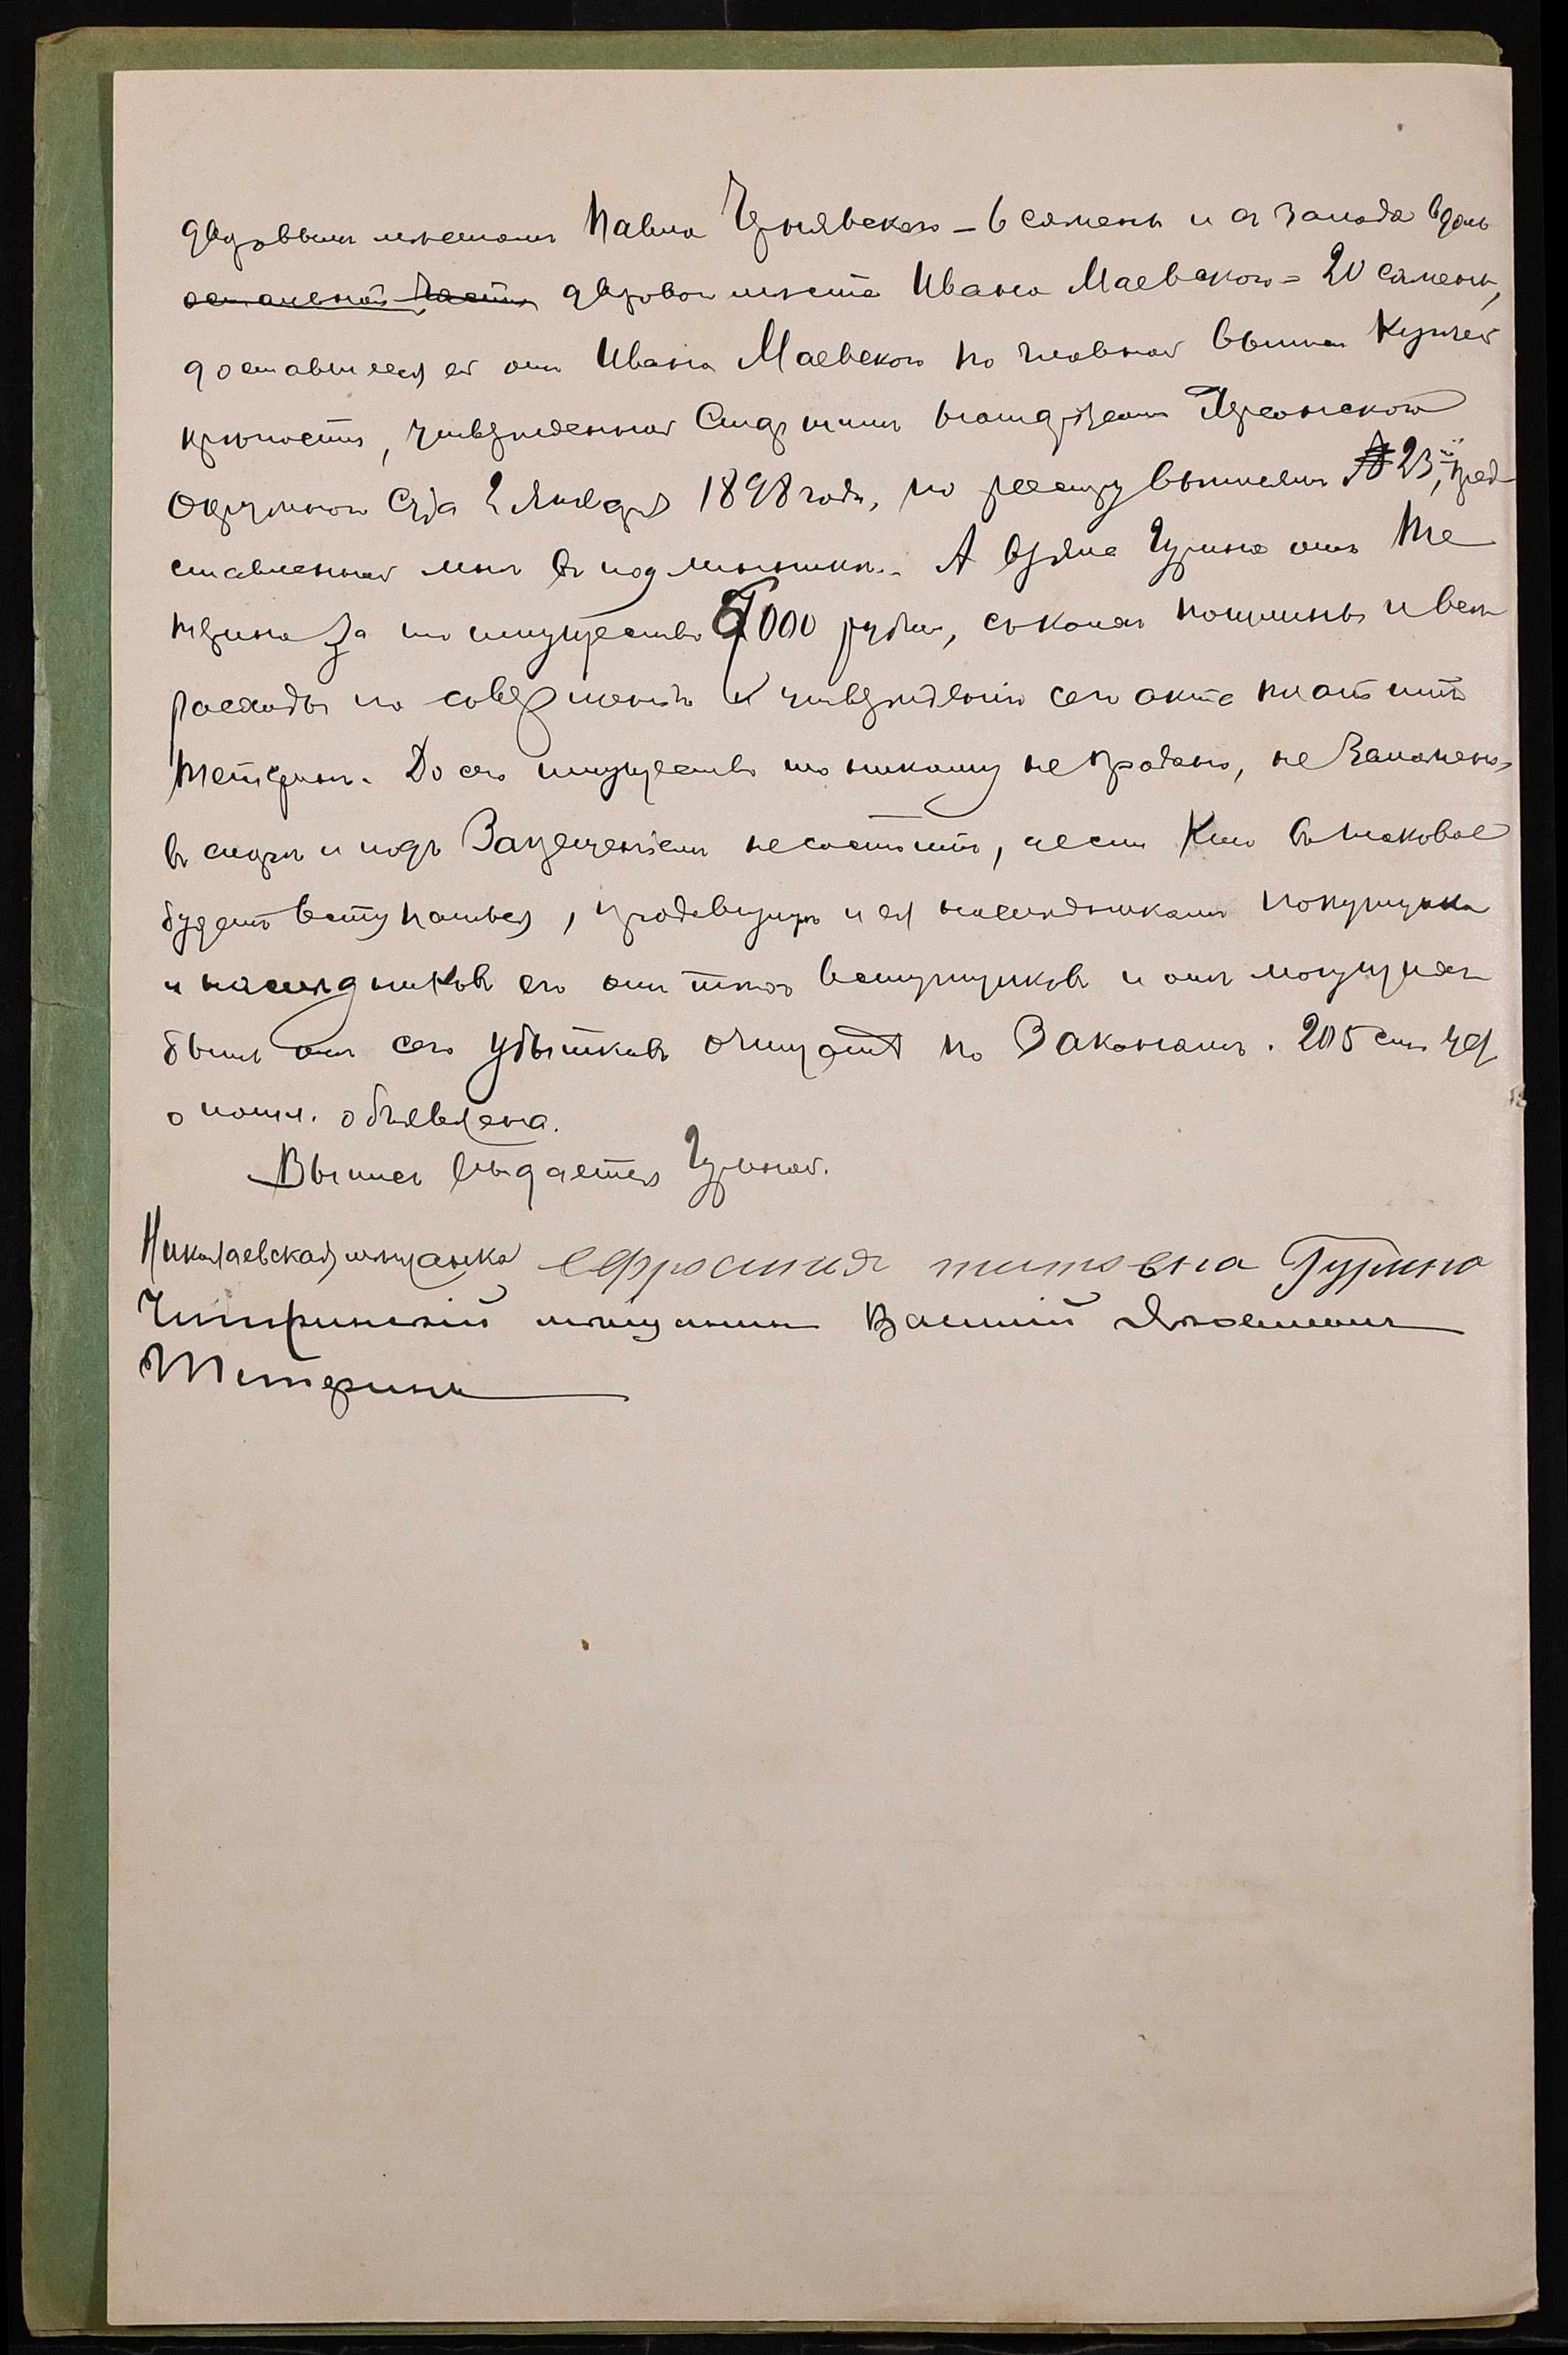 дворовымъ мѣстомъ Павла Чернявскаго – 6 сажень и съ запада вдоль
остальной части двороваго мѣста Ивана Маевскаго = 20 сажень,
доставшееся ей отъ Ивана Маевскаго по главной выписи купчей
крѣпости, утвержденной Старшимъ Нотаріусомъ Херсонскаго
Окружнаго Суда 2 Января 1898 года, по реестру выписей № 23й, пред-
ставленной мнѣ въ подлинникѣ. А взяла Гурина отъ Те
терина за то имущество 000 рублей, съ коихъ пошлины и всѣ
расходы по совершенію и утвержденію сего акта платитъ
Тетеринъ. До сего имущество то никому не продано, не заложено,
въ спорѣ и подъ запрещеніемъ не состоитъ, а если кто въ таковое
будетъ вступаться, продавщицѣ и ея наслѣдникамъ покупщика
и наслѣдниковъ его отъ тѣхъ вступщиковъ и отъ могущихъ
быть отъ сего убытковъ очищать по законамъ. 205 ст.
о пошл. объявлена.
Выпись выдается Гуриной.
Николаевская мѣщанка Ефросинія титовна Гурина
Чигиринскій мѣщанинъ Василий
Тетеринъ